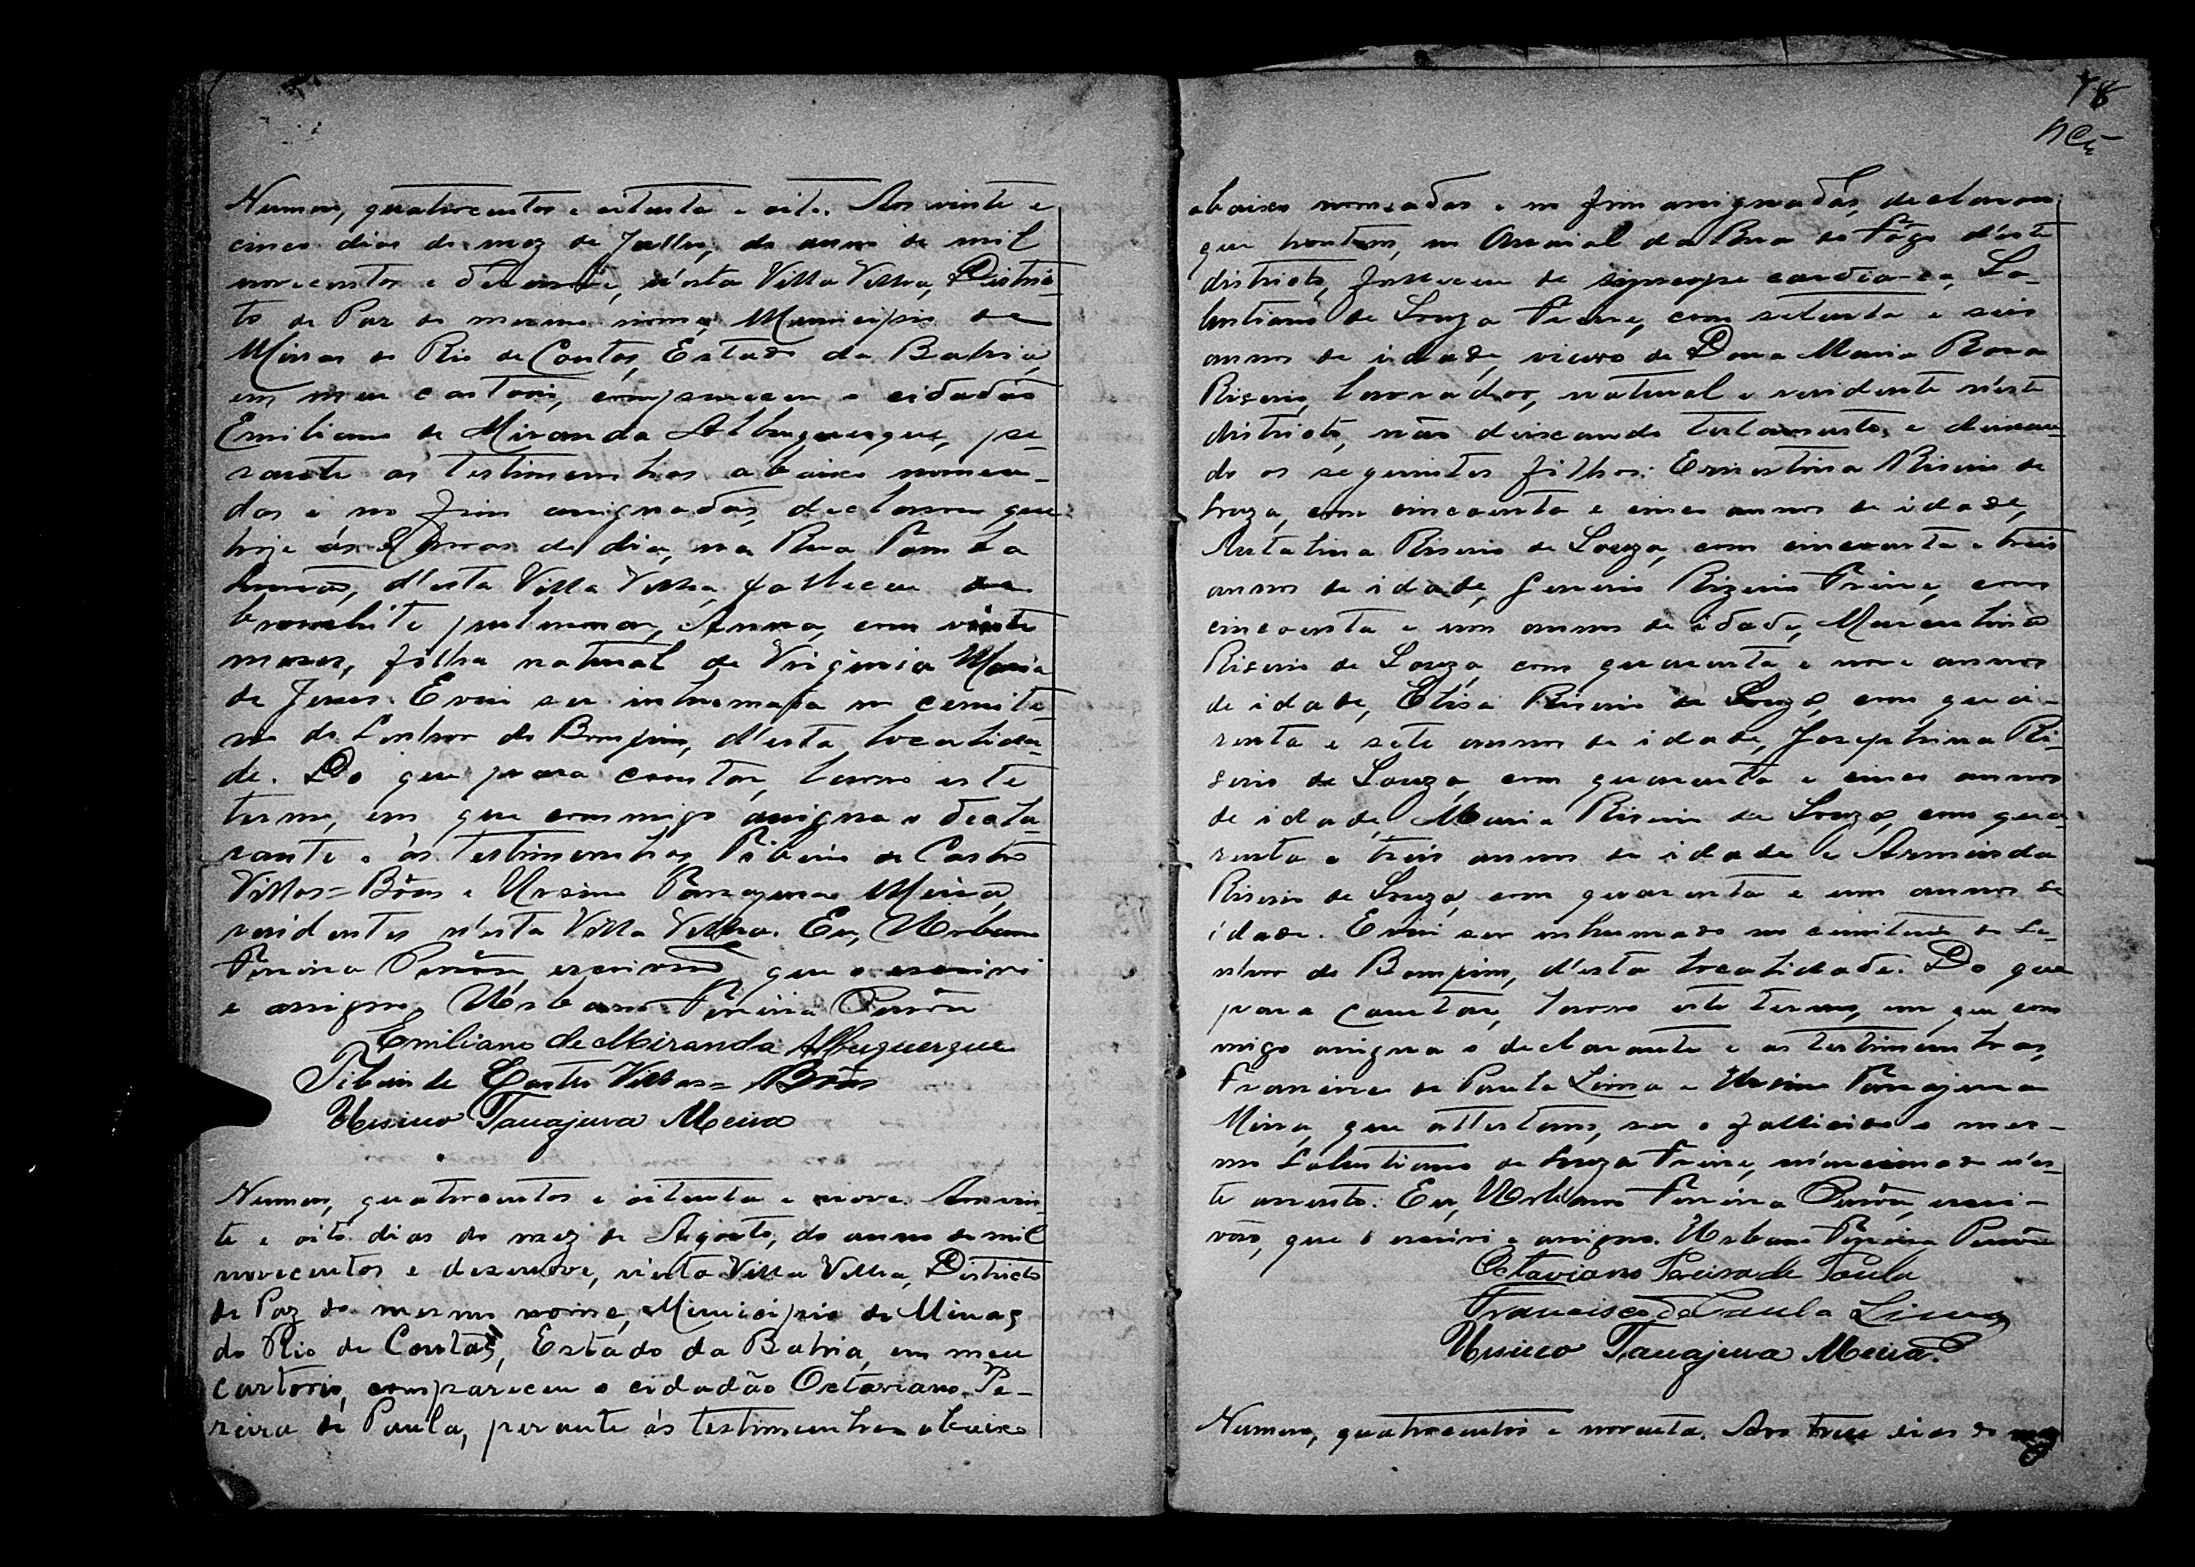 Numero, quatrocentos e oitenta e oito. Aos vinte e
cinco dias do mez de Julho, do anno de mil
novecentos e dezenove, n'esta Villa Velha, Distric-
to de Paz do mesmo nome, Municipio de
Minas do Rio de Contas, Estado da Bahia,
em meu cartorio, compareceu o cidadão
Emiliano de Miranda Albuquerque, pe-
rante as testimunhas abaixo nomea-
das e no fim assignadas, declarou que
hoje ás horas do dia, na Rua
d'esta Villa Velha, falleceu de
bronchite pulmonar, Anna, com vinte
mezes, filha natural de Virginia Maria
de Jesus. E vai ser inhumada no cemite-
rio do Senhor do Bomfim, d'esta localida-
de. Do que para constar, lavro este
termo, em que commigo assigna o decla-
rante e as testimunhas Tiberio de Castro
Villas=Bôas e Ursino Tanajura Meira,
residentes n'esta Villa Velha. Eu, Urbano
Pereira escrivão, que o escrevi
e assigno. Urbano Pereira
Emiliano de Miranda Albuquerque
Tiberio de Castro Villas=Bôas
Ursino Tanajura Meira
Numero, quatrocentos e oitenta e nove. Aos vin-
te e oito dias do mez de Agosto, do anno de mil
novecentos e dezenove, n'esta Villa Velha, Districto
de Paz do mesmo nome, Municipio de Minas
do Rio de Contas, Estado da Bahia, em meu
cartorio, compareceu o cidadão Octaviano Pe-
reira de Paula, perante as testimunhas abaixo
78
abaixo nomeadas e no fim assignadas, declarou
que hontem, no Arraial da do d'este
districto, falleceu de syncope cardiaca, Sa-
lustiano de Souza Freire, com setenta e seis
annos de idade, viuvo de Dona Maria Rosa
Riserio, lavrador, natural e residente n'este
districto, não deixando testamento, e deixan-
do os seguintes filhos: Ernestina Riserio de
Souza, com cincoenta e cinco annos de idade,
Riserio de Souza, com cincoenta e tres
annos de idade, Rizerio Freire, com
cincoenta e um annos de idade,
Riserio de Souza, com quarenta e nove annos
de idade, Elisa Riserio de Souza, com qua-
renta e sete annos de idade, Josephina Ri-
serio de Souza, com quarenta e cinco annos
de idade, Maria Riserio de Souza, com qua-
renta e tres annos de idade e Arminda
Riserio de Souza, com quarenta e um annos de
idade. E vai ser inhumado no cemiterio do Se-
nhor do Bomfim, d'esta localidade. Do que
para constar, lavro este termo, em que com-
migo assigna o declarante e as testimunhas,
Francisco de Paula Lima e Ursino Tanajura
Meira, que attestam, ser o fallecido o mes-
mo Salustiano de Souza Freire, n'es-
te assento. Eu, Urbano Pereira escri-
vão, que o escrevi e assigno. Urbano Pereira
Octaviano Pereira de Paula
Francisco de Paula Lima
Ursino Tanajura Meira.
Numero, quatrocentos e noventa. Aos treze dias do mez